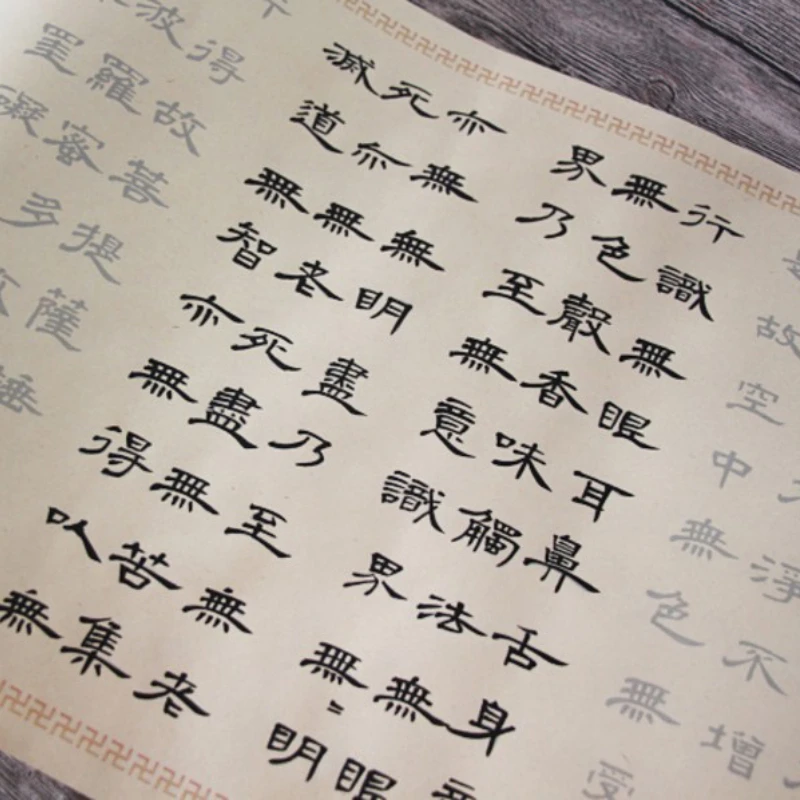 淨不增
是故空中無色無受
行識無眼耳鼻舌身
無色聲香味觸法無眼
界乃至無意識界無〻明
亦無無明盡乃至無老
死亦無老死盡無苦集
滅道無智亦無得以無
得故菩提薩埵
波羅蜜多
罣礙